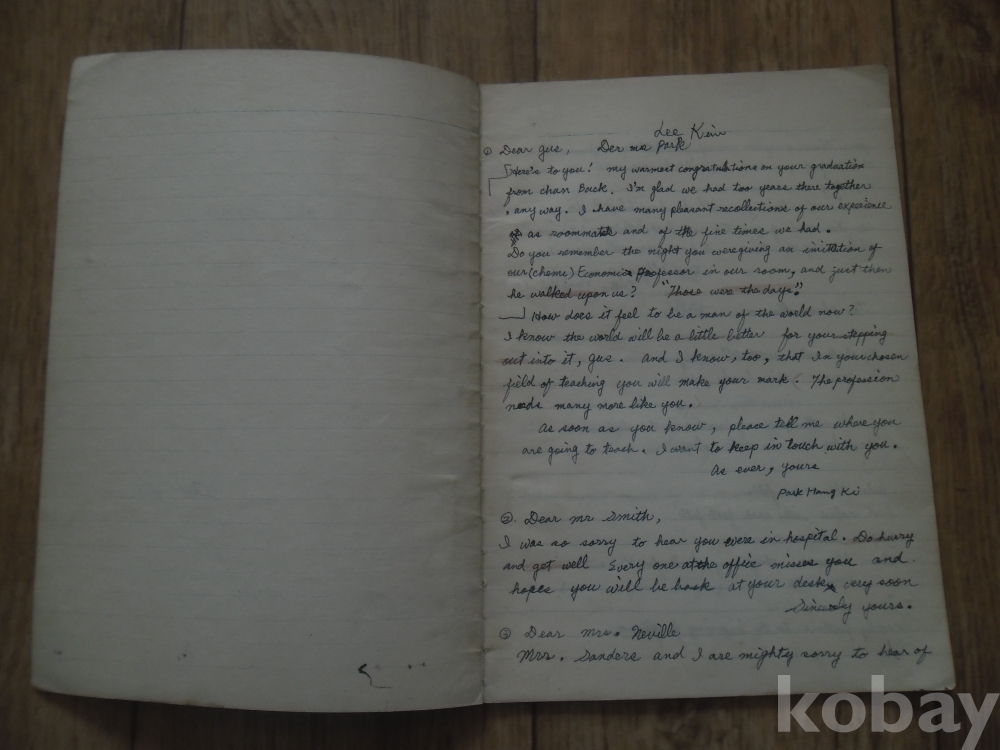 Lee Kim
① Dear gus, Der mr Park
Here's to you! my warmest congratulations on your graduation
from chan Buck. I'm glad we had too years there together
, any way. I have many pleasant recollections of our experience
as roommate and of the fine times we had.
Do you remember the night you were giving an imitation of
our (chemi) Economics Professor in our room, and just then
he walked upon us? "Those were the days."
How does it feel to be a man of the world now?
I know the world will be a little better for your stepping
out into it, gus. And I know, too, that In your chosen
field of teaching you will make your mark. The profession
needs many more like you.
As soon as you know, please tell me where you
are going to teach. I want to keep in touch with you.
As ever, yours
Park Hang Ki
② Dear mr Smith,
I was so sorry to hear you were in hospital. Do hurry
and get well Every one at the office misses you and
hopes you will be back at your desk very soon
Sincerely yours.
③ Dear mrs. Neville
Mrs. Sanders and I are mighty sorry to hear of
kobay